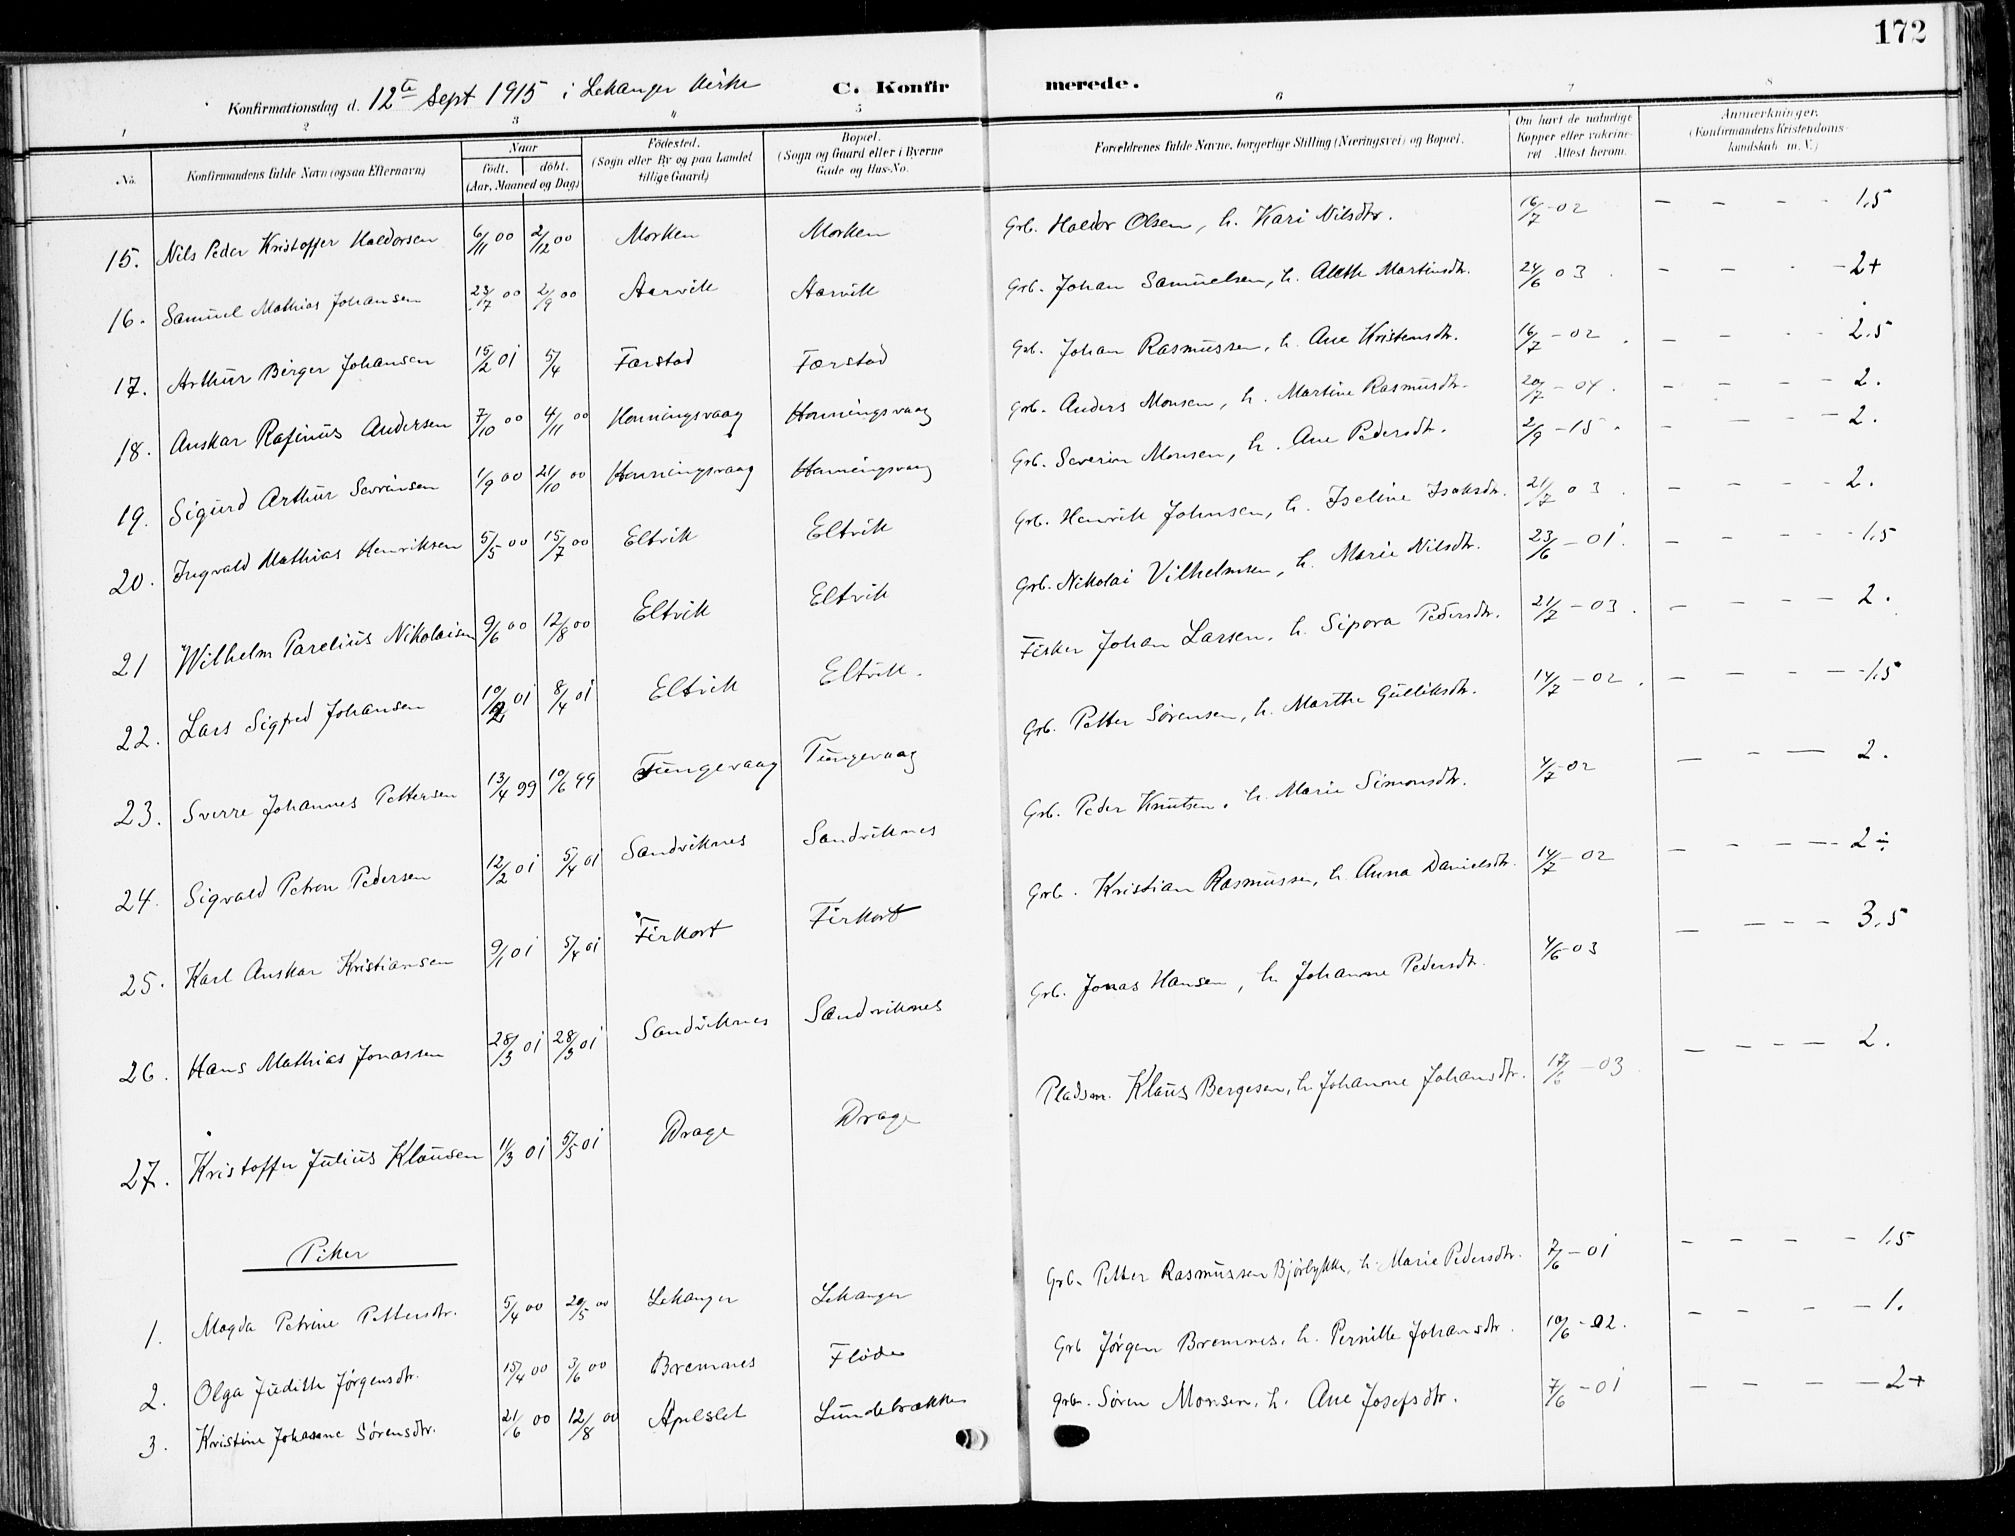 172
Konfirmationsdag d. 12te Sept 1915 i Lekanger Kirke C. Konfirmerede.
1 2 3 4 5 6 7 8
No. Konfirmandens fulde Navn (ogsaa Efternavn) Naar født. døbt. (Aar, Maaned og Dag) Fødested. (Sogn eller By og paa Landet tillige Gaard) Bopæl. (Sogn og Gaard eller i Byerne Gade og Hus-No. Forældrenes fulde Navne, borgerlige Stilling (Næringsvei) og Bopæl. Om havt de naturlige Kopper eller vakcineret Attest herom. Anmerkninger. (Konfirmandens Kristendomskundskab m. V.)
15. Nils Peder Kristoffer Haldorsen 6/11 00 2/12 00 Morken Morken Grb. Haldor Olsen, h. Kari Nilsdtr. 16/7-02 - - - - 1.5
16. Samuel Mathias Johansen 23/7 00 2/9 00 Aarvik Aarvik Grb. Johan Samuelsen, h. Aleth Martinsdtr. 24/6 03 - - - - 2+
17. Arthur Birger Johansen 15/2 01 5/4 Færstad Færstad Grb. Johan Rasmussen, h. Ane Kristensdtr. 16/7-02 - - - - 2.5
18. Anskar Rafinus Andersen 7/10 00 4/11 00 Honningsvaag Honningsvaag Grb. Anders Monsen, h. Martine Rasmusdtr. 20/7-04 - - - - 2.
19. Sigurd Arthur Sevrinsen 1/9 00 21/10 00 Honningsvaag Honningsvaag Grb. Severin Monsen, h. Ane Pedersdtr. 2/9-15 - - - 2.
20. Ingvald Mathias Henriksen 5/5 00 15/7 00 Eltvik Eltvik Grb. Henrik Johnsen, h. Iseline Isaksdtr. 21/7 03 - - - - 2.
21 Wilhelm Parelius Nikolaisen 9/6 00 12/8 00 Eltvik Eltvik Grb. Nikolai Vilhelmsen, h. Marie Nilsdtr. 23/6-01. - - - - 1.5
22. Lars Sigfred Johansen 10/2 01 8/4 01 Eltvik Eltvik. Fisker Johan Larsen, h. Sipora Pedersdtr. 21/7-03. - - - - 2.
23. Sverre Johannes Pettersen 13/4 99 10/6 99 Tungevaag Tungevaag Grb. Petter Sørensen, h. Marthe Gulliksdtr. 14/7-02. - - - - 1.5
24. Sigvald Petron Pedersen 12/2 01 5/4 01 Sandviknes Sandviknes Grb. Peder Knutsen, h. Marie Simonsdtr. 4/7-02 - - - 2.
25. Karl Anskar Kristiansen 9/1 01 5/4 01 Firkort Firkort Grb. Kristian Rasmussen, h. Anna Danielsdtr. 14/7-02 - - - - 2÷
26. Hans Mathias Jonassen 28/3 01 28/3 01 Sandviknes Sandviknes Grb. Jonas Hansen, h. Johanne Pedersdtr. 4/6-03 - - - - 3.5
27. Kristoffer Julius Klausen 11/3 01 5/5 01 Drage Drage Pladsm. Klaus Bergesen, h. Johanne Johansdtr. 17/6-03. - - - - 2.
Piker
1. Magda Petrine Pettersdtr. 5/4 00 20/5 00 Lekanger Lekanger Grb. Petter Rasmussen Bjørlykke, h. Marie Pedersdtr. 7/6-01 - - - - 1.5
2. Olga Judith Jørgensdtr. 15/4 00 3/6 00 Bremnes Fløde Grb Jørgen Bremnes, h. Pernille Johansdtr. 10/6-02. - - - - 1.
3. Kristine Johanne Sørensdtr. 21/6 00 12/8 00 Apelset Lundebrække Grb. Søren Monsen, h. Ane Josefsdtr. 7/6-01 - - - - 2+